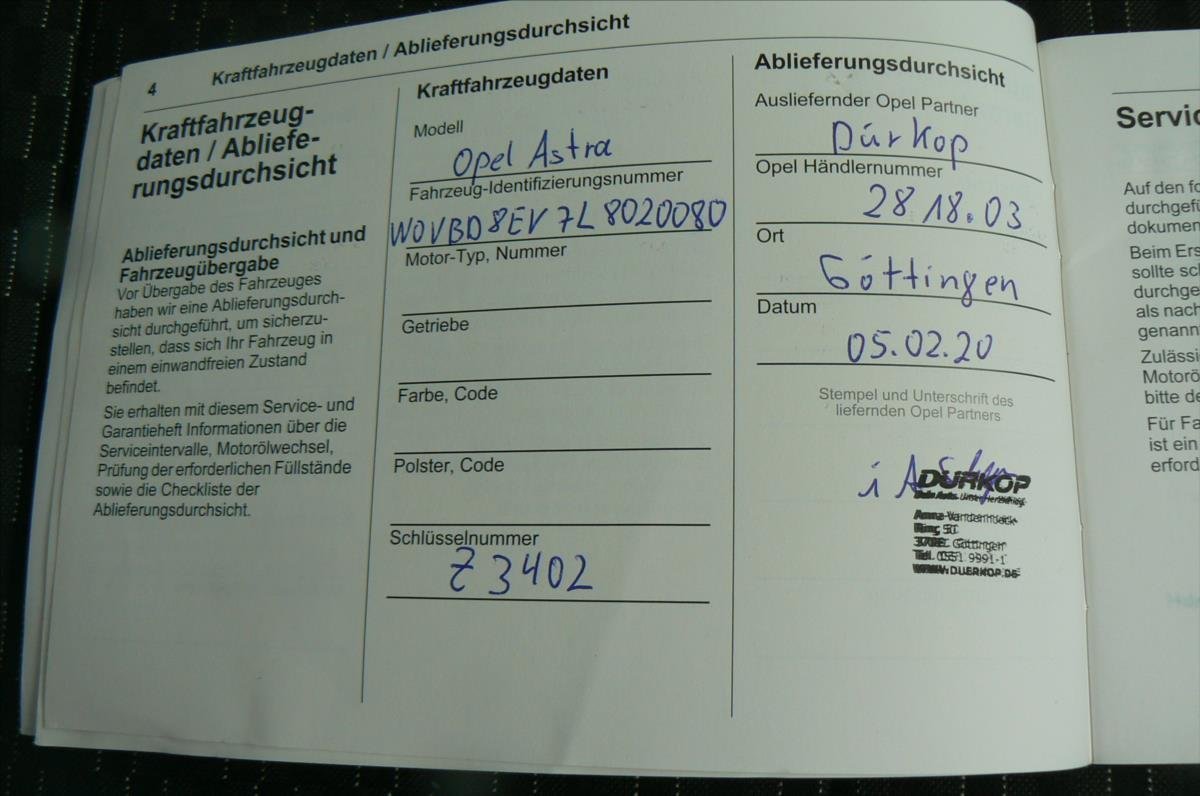 4
Kraftfahrzeugdaten / Ablieferungsdurchsicht
Kraftfahrzeug-
daten / Abliefe-
rungsdurchsicht
Ablieferungsdurchsicht und
Fahrzeugübergabe
Vor Übergabe des Fahrzeuges
haben wir eine Ablieferungsdurch-
sicht durchgeführt, um sicherzu-
stellen, dass sich Ihr Fahrzeug in
einem einwandfreien Zustand
befindet.
Sie erhalten mit diesem Service- und
Garantieheft Informationen über die
Serviceintervalle, Motorölwechsel,
Prüfung der erforderlichen Füllstände
sowie die Checkliste der
Ablieferungsdurchsicht.
Kraftfahrzeugdaten
Modell
Opel Astra
Fahrzeug-Identifizierungsnummer
W0VBD8EV7L8020080
Motor-Typ, Nummer
Getriebe
Farbe, Code
Polster, Code
Schlüsselnummer
Z3402
Ablieferungsdurchsicht
Ausliefernder Opel Partner
Dürkop
Opel Händlernummer
28 18.03
Ort
Göttingen
Datum
05.02.20
Stempel und Unterschrift des
liefernden Opel Partners
i A
DÜRKOP
Göttingen
Tel. 0551 9991-1
WWW.DUERKOP.DE
Servic
Auf den fo
durchgefü
dokumen
Beim Ers
sollte sch
durchge
als nach
genannt
Zulässi
Motorö
bitte de
Für Fa
ist ein
erford